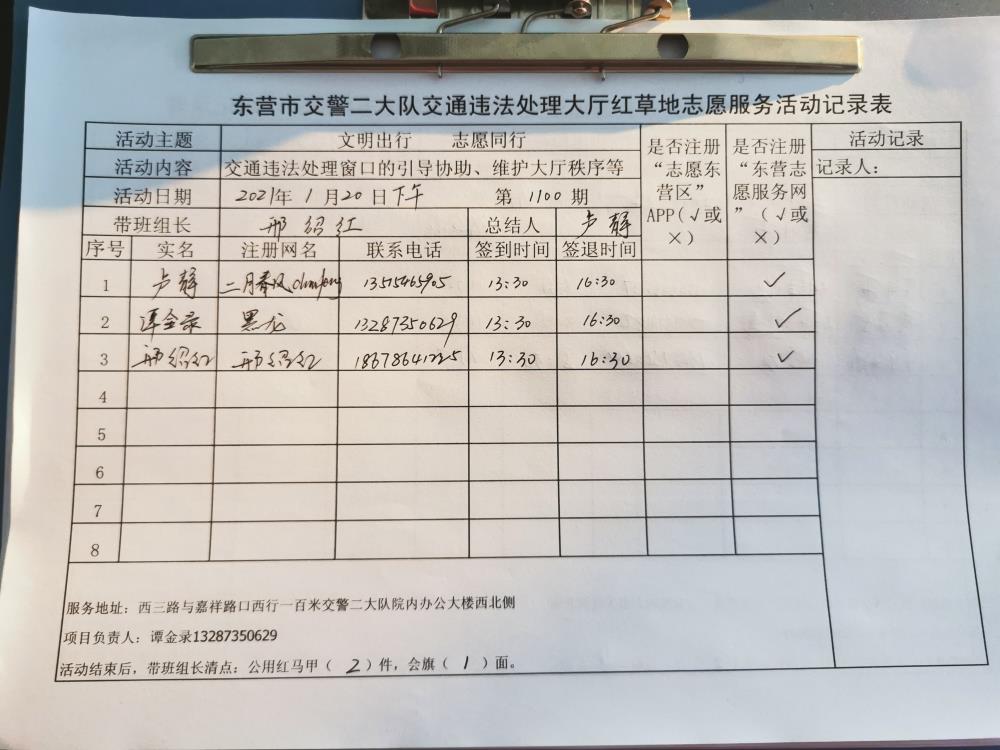 东营市交警二大队交通违法处理大厅红草地志愿服务活动记录表
活动主题 文明出行 志愿同行
活动内容 交通违法处理窗口的引导协助、维护大厅秩序等
活动日期 2021年 1月20日下午 第 1100 期
带班组长 邢绍红 总结人 卢静
是否注册“志愿东营区”APP(√或×)
是否注册“东营志愿服务网”(√或×)
活动记录
记录人：
序号 实名 注册网名 联系电话 签到时间 签退时间
1 卢静 二月春风 13515465905 13:30 16:30 ✓
2 谭金录 黑龙 13287350629 13:30 16:30 ✓
3 邢绍红 邢绍红 18678641225 13:30 16:30 ✓
4
5
6
7
8
服务地址：西三路与嘉祥路口西行一百米交警二大队院内办公大楼西北侧
项目负责人：谭金录13287350629
活动结束后，带班组长清点：公用红马甲（ 2 ）件，会旗（ 1 ）面。